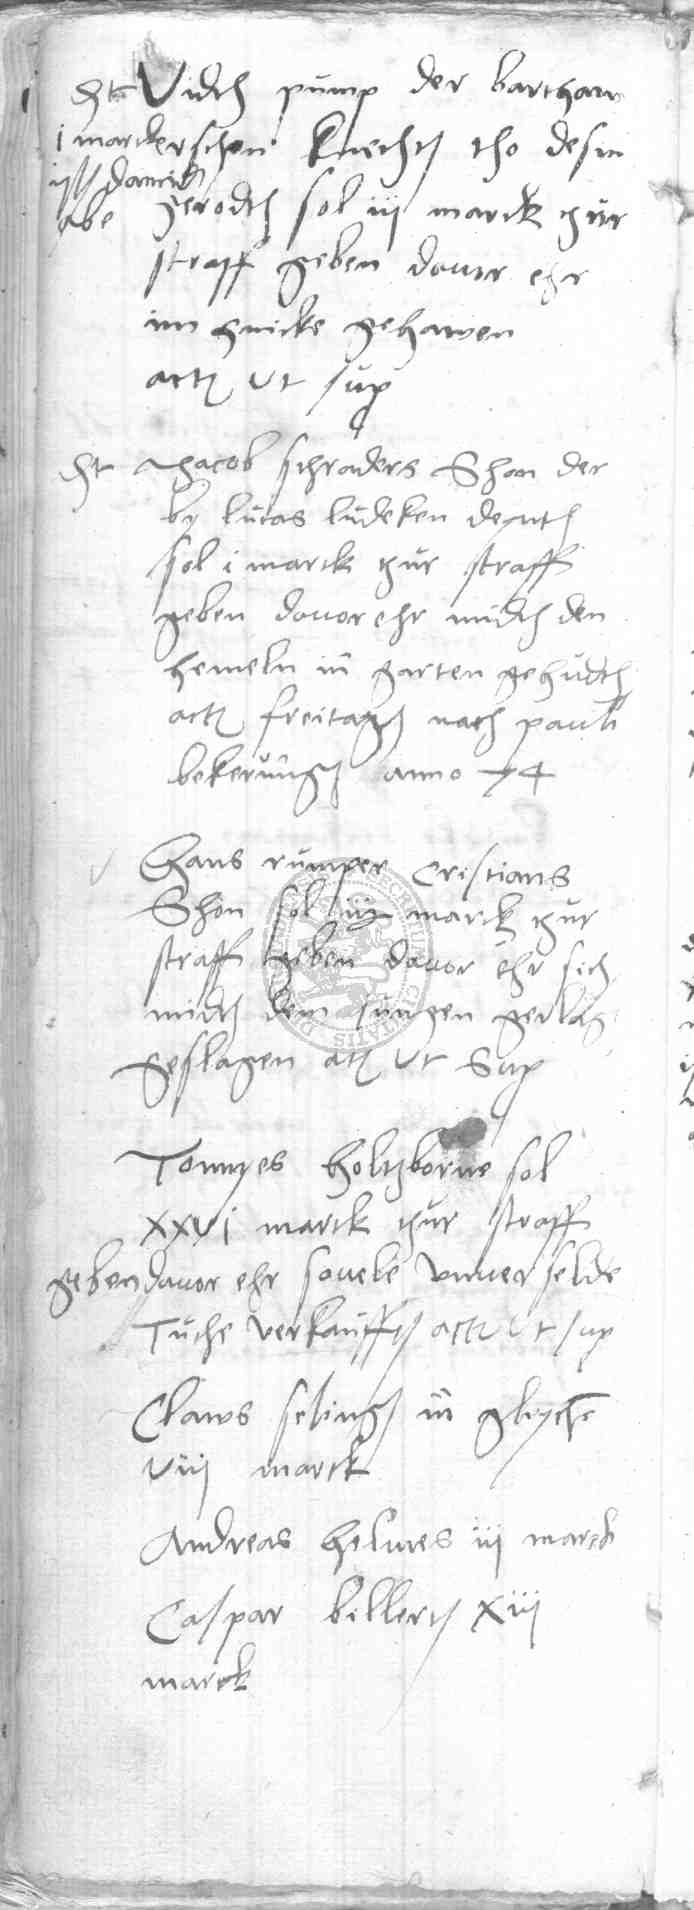 dt Vidth pump der barthaw
i marck erschen knecht tho desin
gerodth sol iij marck zur
abe straff geben dauor ehr
im gnicke gehawen
act ut sup
dt Jacob schraders Shon der
by lucas ludeken
sol i marck zur straff
geben dauor ehr midth den
hemeln in garten gehudth
act freitagß nach pauli
bekerung anno 74
Hans rumper Cristians
Shon sol iiij marck zur
straff geben dauor ehr sich
midth dem jungen gerlag
geslagen act ut Sup
Tonnyes Holtzborne sol
xxvi marck zur straff
geben dauor ehr souele vnuerselde
Tuche verkaufft act ut sup
Claws seling in glych
viij marck
Andreas helmes iij marck
Caspar billerß xiij
marck